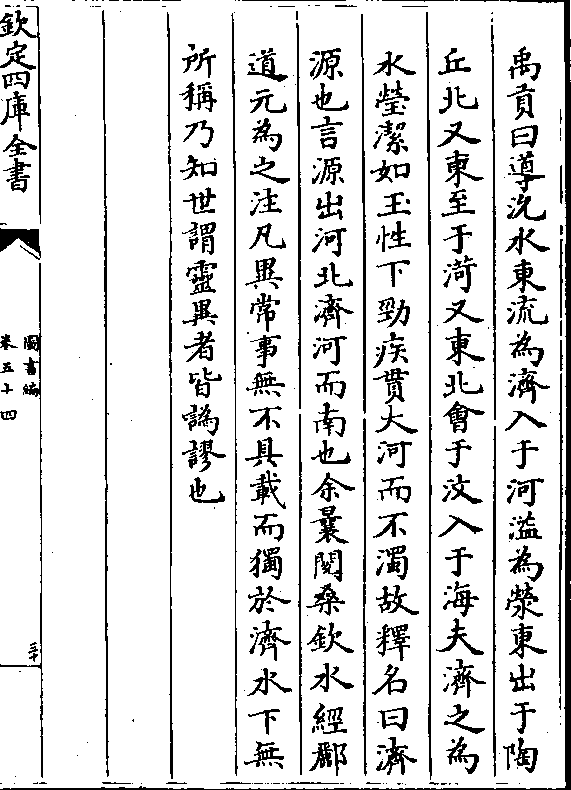 禹貢曰導沇水東流為濟入于河溢為滎東出于陶
丘北又東至于菏又東北會于汶入于海夫濟之為
水瑩潔如玉性下勁疾貫大河而不濁故釋名曰濟
源也言源出河北濟河而南也余曩閱桑欽水經酈
道元為之注凡異常事無不具載而獨於濟水下無
所稱乃知世謂靈異者皆譌謬也
欽定四庫全書
圖書編
卷五十四